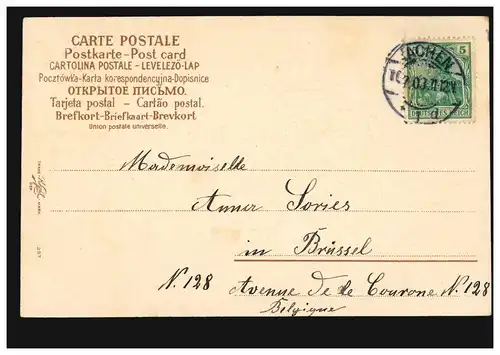 CARTE POSTALE
Postkarte–Post card
CARTOLINA POSTALE – LEVELEZŐ-LAP
Pocztówka-Karta korespondencyjna-Dopisnice
ОТКРЫТОЕ ПИСЬМО.
Tarjeta postal – Cartão postal.
Brefkort-Briefkaart-Brevkort
Union postale universelle.
AACHEN
5
DEUTSCHES REICH
Mademoiselle
Anna Sories
in Brüssel
N. 128 Avenue de la Couronne N. 128
Belgique